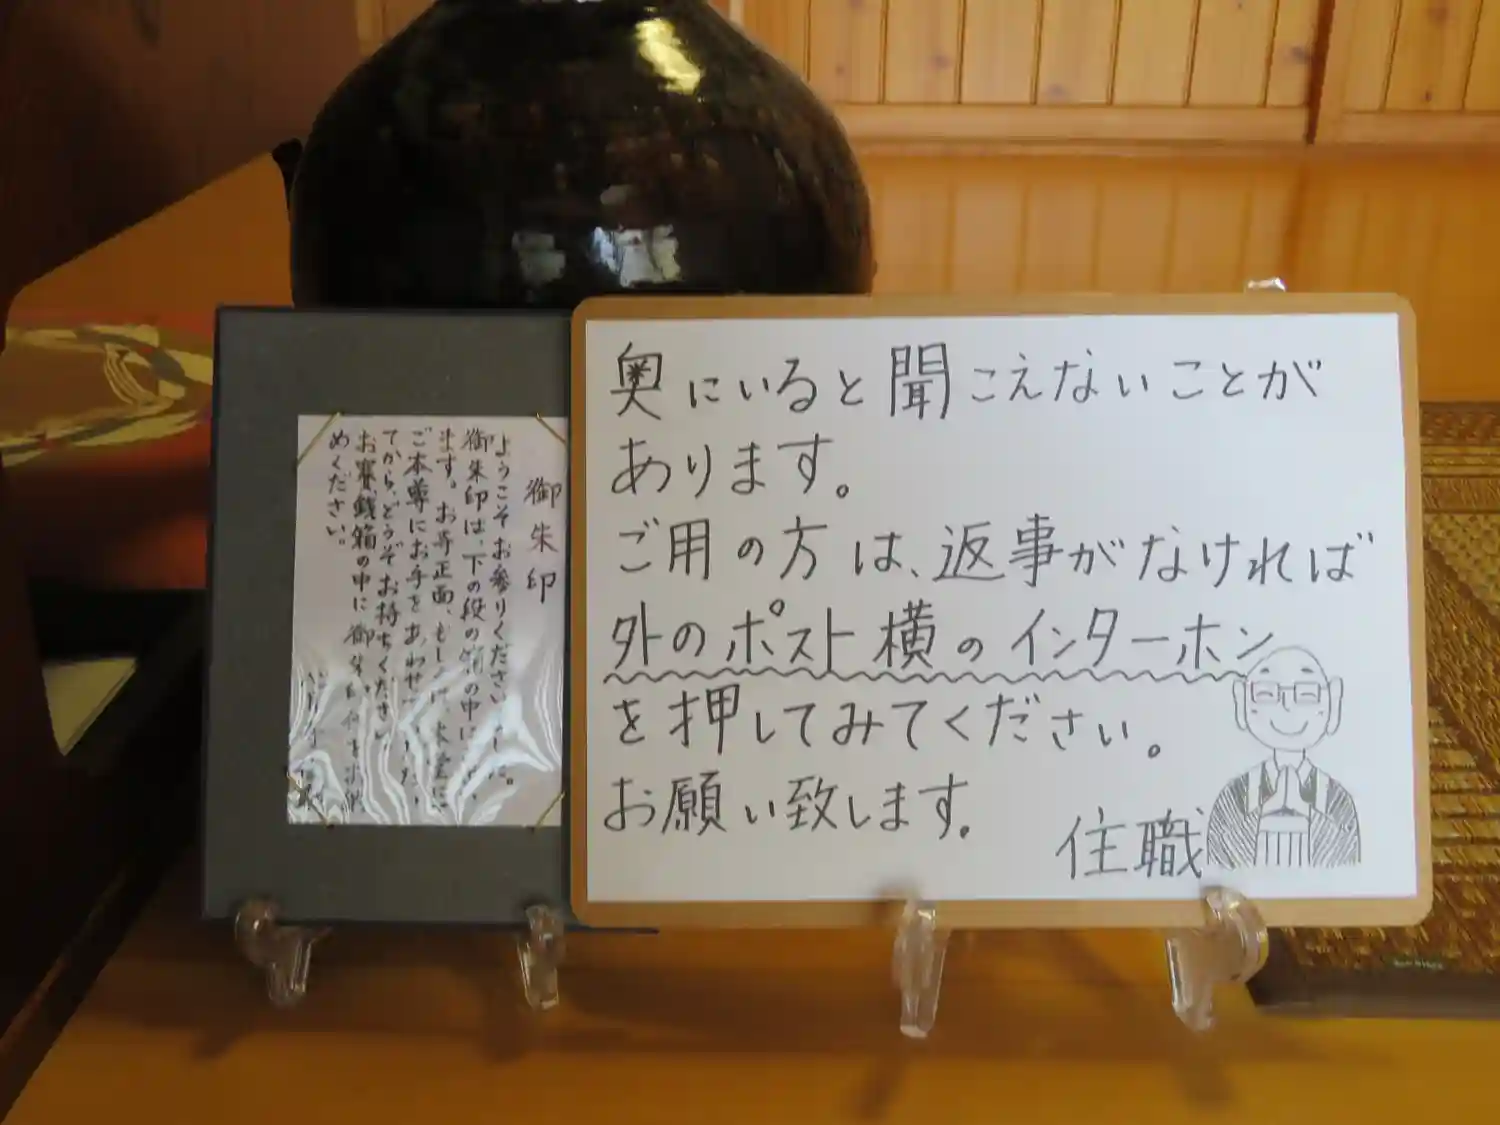 奥にいると聞こえないことが
あります。
ご用の方は、返事がなければ
外のポスト横のインターホン
を押してみてください。
お願い致します。
住職
御朱印
ようこそお参りください
御朱印は、下の段の箱の中に
ます。お寺正面、もしくは、本堂に
ご本尊にお手をあわせ
てから、どうぞお持ちください
お賽銭箱の中に御朱印代をお納
めください。